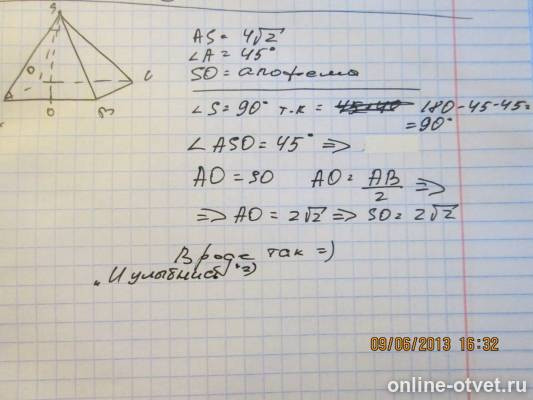 S
AS = 4√2
∠A = 45°
SO = апофема
∠S = 90° т.к = 180-45-45=
= 90°
∠ASO = 45° =>
AO = SO AO = AB/2 =>
=> AO = 2√2 => SO = 2√2
Вроде так =)
"И улыбнись" =)
O
O
09/06/2013 16:32
online-otvet.ru